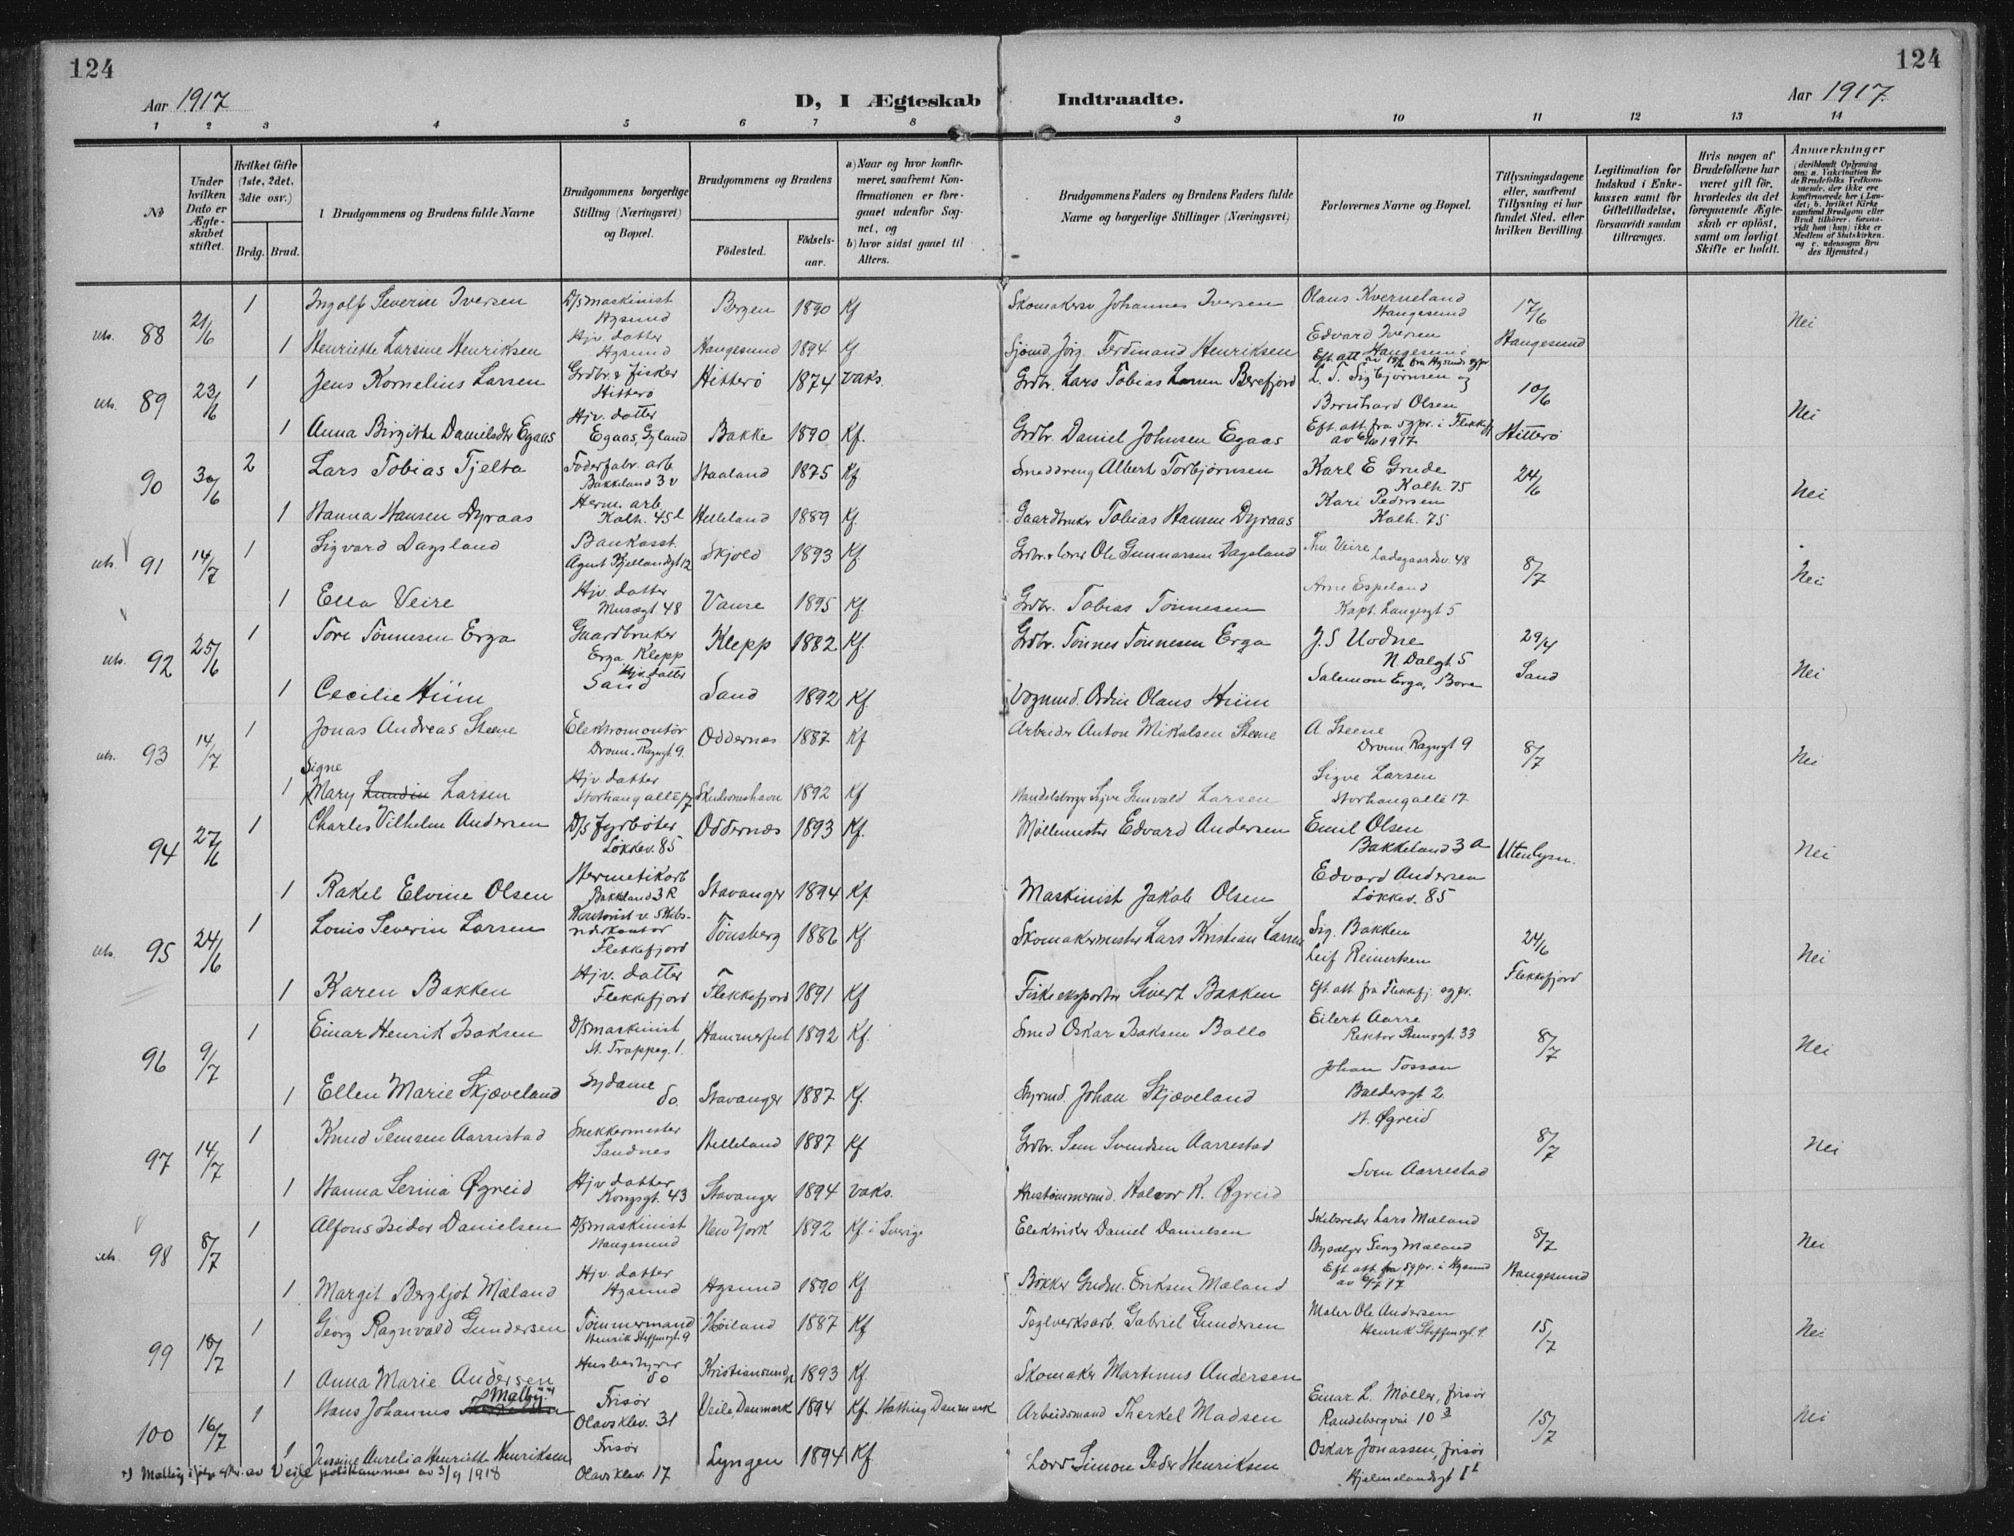 124
124
Aar 1917
D, I Ægteskab Indtraadte.
Aar 1917.
1 2 3 4 5 6 7 8 9 10 11 12 13 14
No
Under hvilken Dato er Ægteskabet stiftet.
Hvilket Gifte (1ste, 2det, 3die osv.)
Brdg. Brud.
1 Brudgommens og Brudens fulde Navne
Brudgommens borgerlige Stilling (Næringsvei) og Bopæl.
Brudgommens og Brudens
Fødested.
Fødselsaar.
a) Naar og hvor konfirmeret, saafremt Konfirmationen er foregaaet udenfor Sognet, og
b) hvor sidst gaaet til Alters.
Brudgommens Faders og Brudens Faders fulde Navne og borgerlige Stillinger (Næringsvei)
Forlovernes Navne og Bopæl.
Tillysningsdagene eller, saafremt Tillysning ei har fundet Sted, efter hvilken Bevilling.
Legitimation for Indskud i Enkekassen samt for Giftetilladelse, forsaavidt saadan tiltrænges.
Hvis nogen af Brudefolkene har været gift før, hvorledes da det foregaaende Ægteskab er opløst, samt om lovligt Skifte er holdt.
Anmærkninger (deriblandt Oplysning om: a. Vakcination for de Brudefolks Vedkommende, der ikke ere konfirmerede her i Landet; b. hvilket Kirkesamfund Brudgom eller Brud tilhører, forsaavidt han (hun) ikke er Medlem af Statskirken. og c. udensogns Brudes Hjemsted.)
uts. 88 21/6 1 Ingolf Severin Iversen D/S maskinist Hgsund Bergen 1890 Kf Skomakersv Johannes Iversen Olaus Kverneland Haugesund 17/6 Nei
1 Henriette Larsine Henriksen Hjv. datter Hgsund Haugesund 1894 Kf Sjømd. Jørg. Ferdinand Henriksen Edvard Iversen Haugesund Haugesund
uts. 89 23/6 1 Jens Kornelius Larsen Grdbr. & fisker Hitterø Hitterø 1874 vaks. Grdbr. Lars Tobias Larsen Berefjord L. T. Sigbjørnsen og 10/6 Nei
1 Anna Birgitte Danielsdtr Egaas Hjv. datter Egaas, Gyland Bakke 1890 Kf. Grdbr. Daniel Johnsen Egaas Bernhard Olsen Eft. att. fra sgpr. i Flekkefj av 6/6 1917 Hitterø
90 30/6 2 Lars Tobias Tjelta Foderfabr. arb Bakkeland 3 v Haaland 1875 Kf Smeddreng Albert Torbjørnsen Karl E Grude Kalh. 75 24/6 Nei
1 Hanna Hansen Dyraas Herm. arb. Kalh. 45 Helleland 1889 Kf. Gaardbruker Tobias Hansen Dyraas Kari Pedersen Kalh. 75
uts. 91 14/7 1 Sigvard Dagsland Bankasst. Agent Kjellandsgt 12 Skjold 1893 Kf. Grdbr. & lærer Ole Gunnarsen Dagsland Thv. Veire Ladegaardsv. 48 8/7 Nei
1 Ella Veire Hjv. datter Musegt 48 Vanse 1895 Kf. Grdbr. Tobias Tønnesen Arne Espeland Kapt. Langesgt 5
uts. 92 25/6 1 Tore Tønnesen Erga Gaardbruker Erga Klepp Klepp 1882 Kf. Grdbr. Tønnes Tønnesen Erga J. S. Uodne N. Dalgt 5 29/4 Nei
1 Cecilie Hiim Hjv. datter Sand Sand 1892 Kf. Vognmd. Ordin Olaus Hiim Salemon Erga, Bore Sand
uts. 93 14/7 1 Jonas Andreas Steene Elektromontør Dronn. Ragngt 9. Oddernes 1887 Kf Arbeider Anton Mikalsen Steene A Steene Dronn Ragngt 9 8/7 Nei
1 Signe Mary Larsen Hjv datter Storhaug allé 17 Skudeneshavn 1892 Kf Handelsborger Sigve Gunvald Larsen Sigve Larsen Storhaugallé 17
94 27/6 1 Charles Vilhelm Andersen D/S fyrbøter Løkkev. 85 Oddernes 1893 Kf. Møllemester Edvard Andersen Emil Olsen Bakkeland 3 a Utenlysn. Nei
1 Rakel Elvine Olsen Hermetikarb Bakkeland 3 R Stavanger 1894 Kf Maskinist Jakob Olsen Edvard Andersen Løkkev. 85
uts. 95 24/6 1 Louis Severin Larsen Kontorist v. skibsrederkontor Flekkefjord Tønsberg 1886 Kf. Skomakermester Lars Kristian Larsen Sig. Bakken 24/6 Nei
1 Karen Bakken Hjv. datter Flekkefjord Flekkefjord 1891 Kf Fiskeeksportør Sivert Bakken Leif Reinertsen Eft. att. fra Flekkefj. sgpr. Flekkefjord
96 9/7 1 Einar Henrik Isaksen D/S maskinist St. Trappeg. 1. Hammerfest 1892 Kf. Smed Oskar Isaksen Ballo Eilert Aarre Rektor Stensgt. 33 8/7 Nei
1 Ellen Marie Skjæveland Sydame do. Stavanger 1887 Kf. Styrmd. Johan Skjæveland Johan Tosson Baldersgt 2
97 14/7 1 Knud Semsen Aarrestad Snekkermester Sandnes Helleland 1887 Kf Grdbr. Sem Svendsen Aarrestad H. Øgreid 8/7 Nei
1 Hanna Serina Øgreid Hjv datter Kongsgt. 43 Stavanger 1894 vaks. Hustømmermd. Halvor K. Øgreid Sven Aarrestad
uts. 98 8/7 1 Alfons Isidor Danielsen D/S maskinist Haugesund New York 1892 Kf. i Sverige Elektriker Daniel Danielsen Skibsreder Lars Mæland 8/7 Nei
1 Margit Bergljot Mæland Hjv. datter Hgsund Hgsund 1890 Kf. Bøkker Gudm. Eriksen Mæland Byselger Georg Mæland Eft. att. fra sgpr. i Hgsund av 6/7 17 Haugesund
99 18/7 1 Georg Ragnvald Gundersen Tømmermand Henrik Steffensgt. 9 Høiland 1887 Kf Teglverksarb. Gabriel Gundersen Maler Ole Andersen Henrik Steffensgt. 9. 15/7 Nei
1 Anna Marie Andersen Husbestyrer do Kristiansund n 1893 Kf. Skomaker Martinus Andersen
100 16/7 1 Hans Johannes Malby Frisør Olavsklev. 31 Veile, Danmark 1894 Kf. Hatting Danmark Arbeidsmand Therkel Madsen Einar L. Møller, frisør Randebergvei 10 3 15/7 Nei
1 Jensine Aurelia Henriette Henriksen Frisør Olavsklev. 17 Lyngen 1894 Kf. Lærer Simon Peder Henriksen Oskar Jonassen, frisør Hjelmelandsgt 1
Malby ifølge av Veile av 3/9 1918